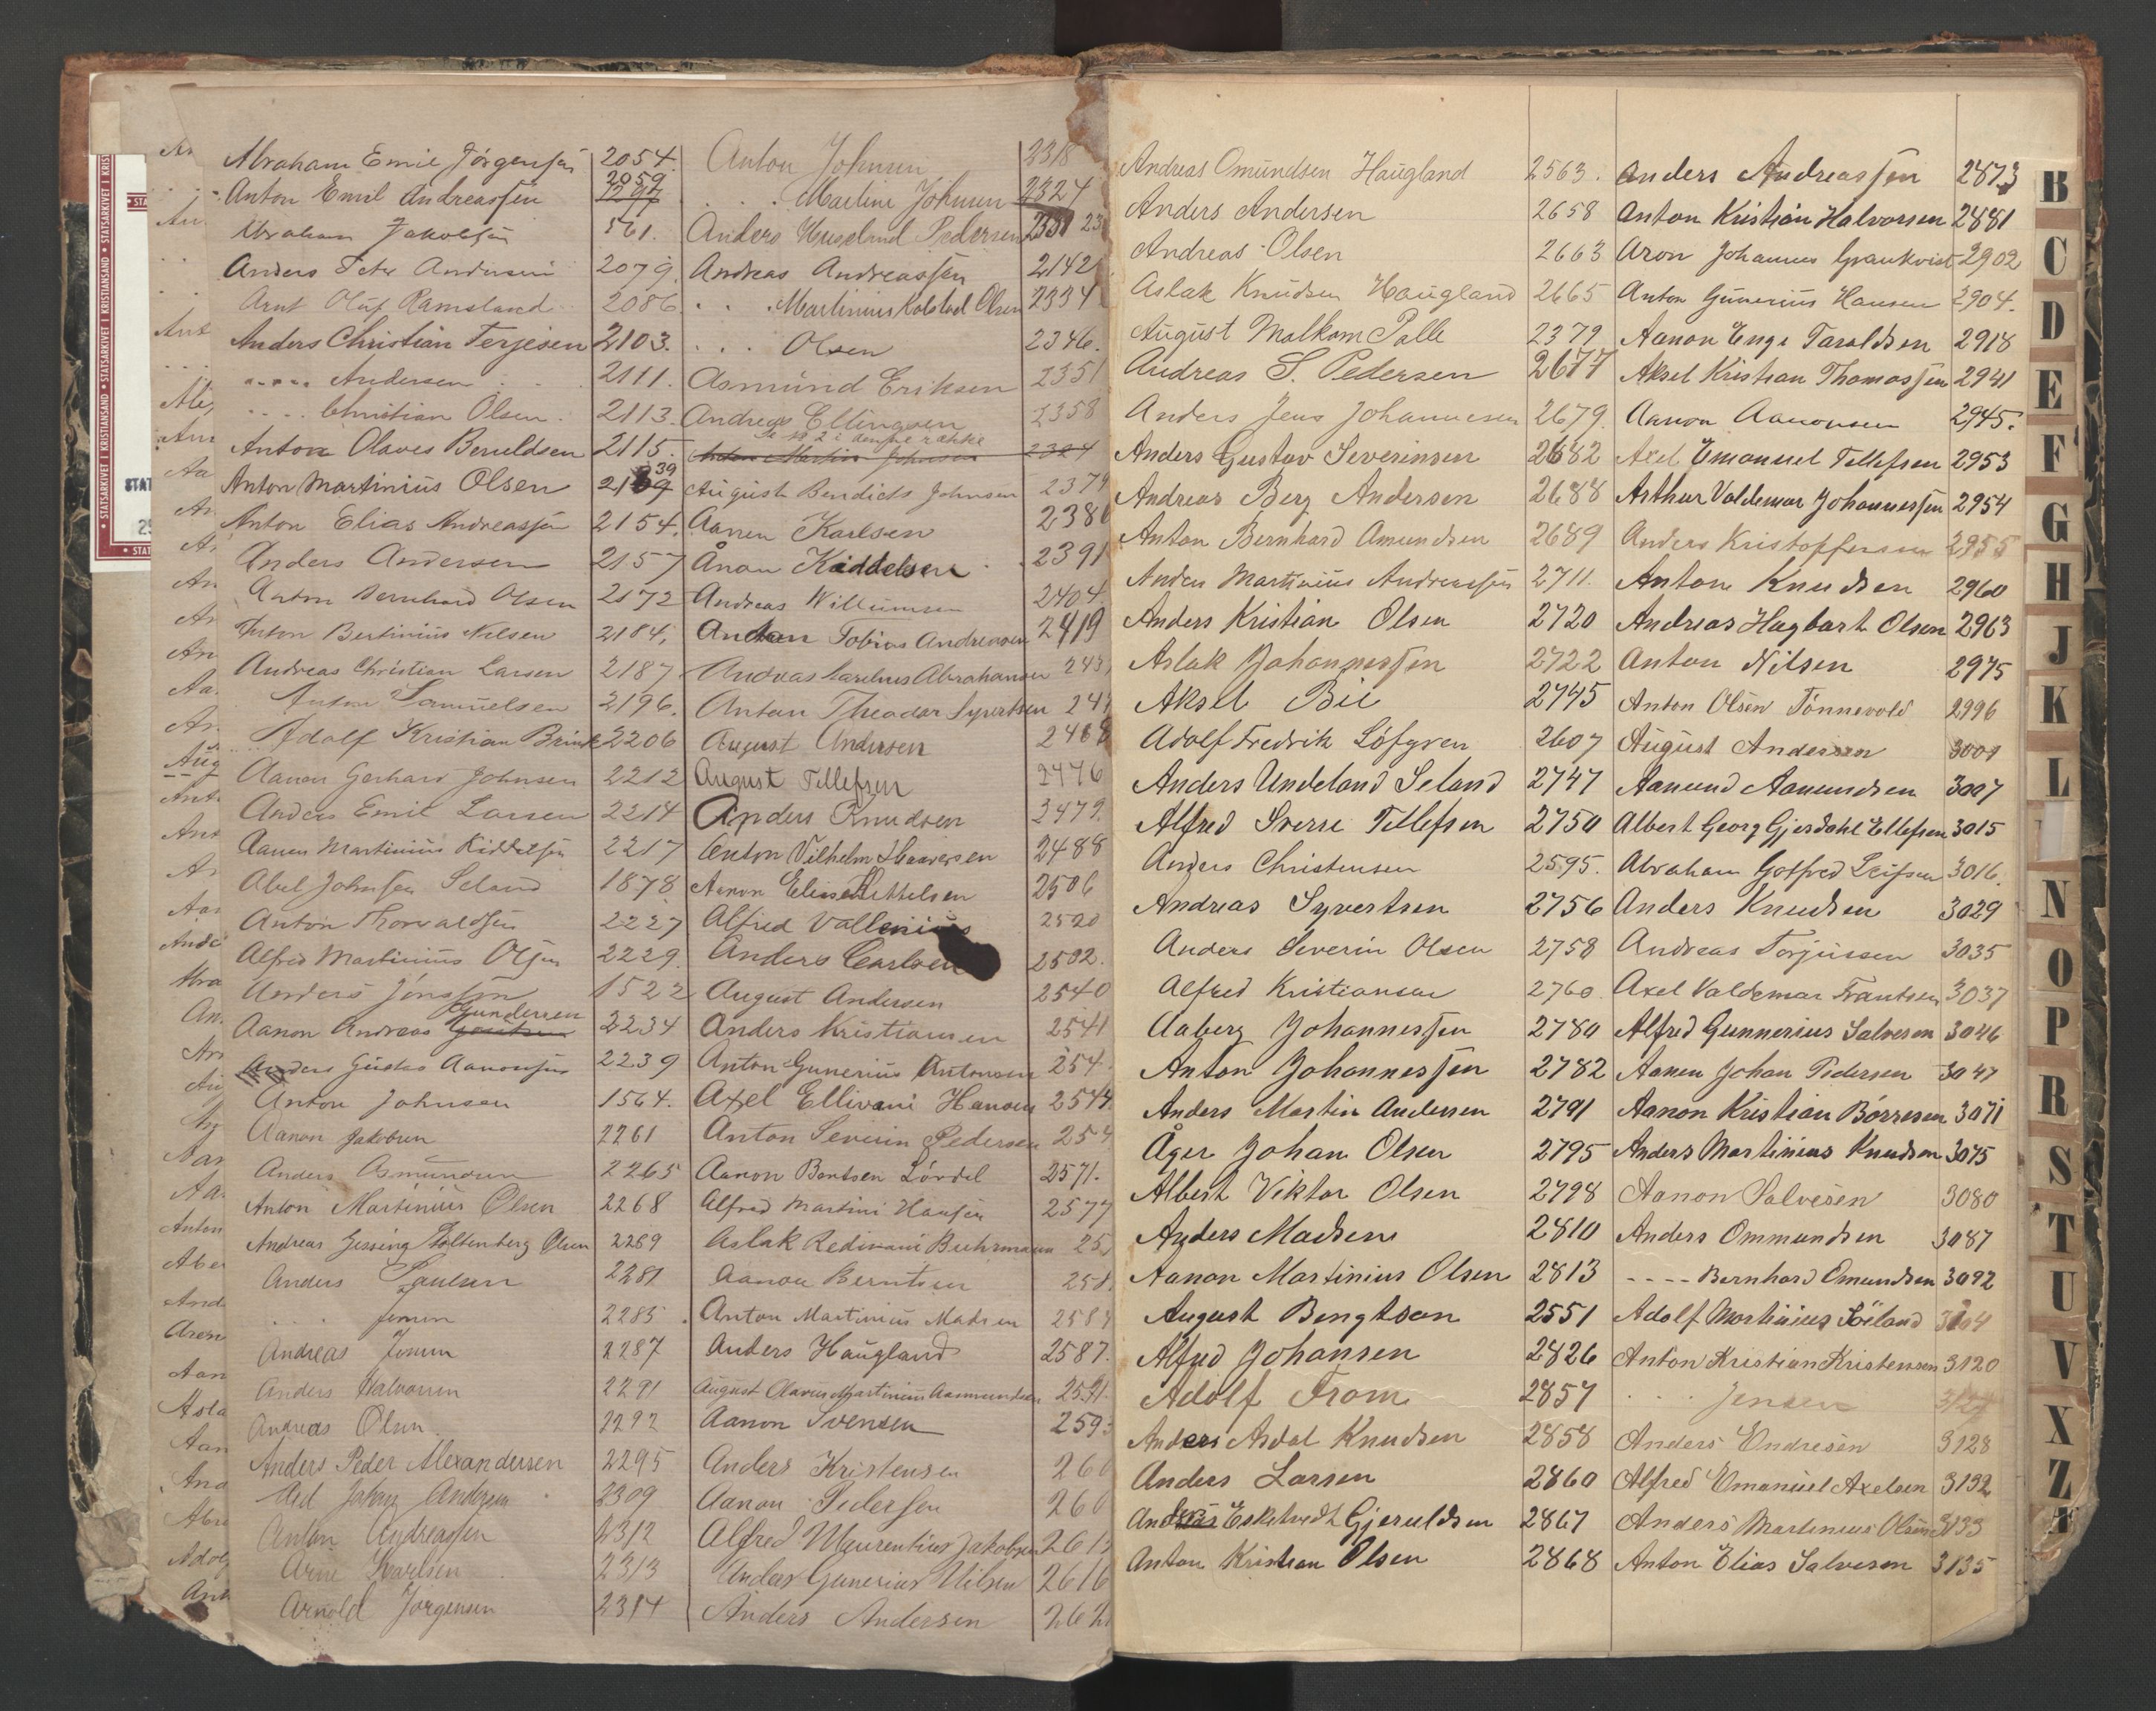 Abraham Emil Jörgensen 2054.
2059
Anton Emil Andreassen
Abraham Jakobsen 561.
Anders Peter Andersen 2079.
Arnt Oluf Ramsland 2086.
Anders Christian Terjesen 2103.
" " " " Andersen 2111.
" " " " Christian Olsen. 2113.
Anton Olaves Beruldsen 2115.
39
Anton Martinius Olsen
Anton Elias Andreassen 2154.
Anders Andersen 2157
Anton Bernhard Olsen 2172
Anton Bertinius Nilsen 2184.
Andreas Christian Larsen 2187
Anton Samuelsen 2196.
Adolf Kristian Brink 2206
Aanon Gerhard Johnsen 2212
Anders Emil Larsen 2214
Aanen Martinius Kiddelsen 2217
Abel Johnsen Seland 1878
Anton Thorvaldsen 2227
Alfred Martinius Olsen 2229.
Anders Jonsson 1522
Gundersen
Aanon Andreas 2234
Anders Gustav Aanonsen 2239
Anton Johnsen 1564.
Aanon Jakobsen 2261
Anders Asmundsen 2265
Anton Martinius Olsen 2268
Andreas Gessing Stoltenberg Olsen 2269
Anders Paulsen 2281
. . . Jensen 2285
Andreas Jensen 2287
Anders Halvorsen 2291
Andreas Olsen 2292
Anders Peder Alexandersen 2295
Johan Andersen 2309
Anton Andreassen 2312
Arne Karlsen 2313
Arnold Jörgensen 2314
Anton Johnsen 2318
. . . Martin Johnsen 2324
Anders Pedersen
Andreas Andreassen 2142
. . . Martinius Kolstad Olsen 2334
. . . Olsen 2346.
Asmund Eriksen 2351
Andreas Ellingsen 2358
Se No 2 i denne række
Anton Martin Johnsen 2324
August Bendicts Johnsen 2379
Aanen Karlsen 2380
Ånon Kiddelsen 2391
Andreas Willumsen 2404.
Anton Tobias Andreasen 2419
Andreas Carelius Abrahamsen 243
Anton Theodor Syvertsen 244
August Andersen 2468
August Tellefsen 2476
Anders Knudsen 2479.
Anton Vilhelm Haaversen 2488
Aanon Elias Kittelsen 2506
Alfred Vallenius 2520
Anders Carlsen 2502.
August Andersen 2540
Anders Kristiansen 2541
Anton Gunerius Antonsen 254
Axel Ellivani Hansen 2544
Anton Severin Pedersen 254
Aanon Bentsen Lövdal 2571.
Alfred Martini Hansen 2577
Aslak Redivani Buhrmann 25
Aanon Berntsen 258
Anton Martinius Madsen 2584
Anders Haugland 2587.
August Olavius Martinius Aamundsen 2591.
Aanon Svensen 2593
Anders Kristensen 260
Aanon Pedersen 260
Alfred Maurentius Jakobsen 2612
Anders Gunerius Nilsen 2616
Anders Andersen 262
Andreas Omundsen Haugland 2563.
Anders Andersen 2658
Andreas Olsen 2663
Aslak Knudsen Haugland 2665
August Malkom Palle 2379
Andreas S. Pedersen 2677
Anders Jens Johannesen 2679.
Anders Gustav Severinsen 2682
Andreas Berg Andersen 2688
Anton Bernhard Amundsen 2689
Anders Martinius Andreassen 2711.
Anders Kristian Olsen 2720
Aslak Johannessen 2722
Aksel Bie 2745
Adolf Fredrik Löfgren 2607
Anders Undeland Seland 2747
Alfred Sverre Tellefsen 2750
Anders Christensen 2595.
Andreas Syvertsen 2756
Anders Severin Olsen 2758
Alfred Kristiansen 2760
Aaberg Johannessen 2780
Anton Johannessen 2782
Anders Martin Andersen 2791
Åger Johan Olsen 2795
Albert Viktor Olsen 2798
Anders Madsen 2810
Aanon Martinius Olsen 2813
August Bengtson 2551
Alfred Johansen 2826
Adolf From 2857
Anders Asdal Knudsen 2858
Anders Larsen 2860
Anders Eskelvedt Gjeruldsen 2867
Anton Kristian Olsen 2868
Anders Andreassen 2873
Anton Kristian Halvorsen 2881
Aron Johannes Grankvist 2902
Anton Gunerius Hansen 2904.
Aanon Enge Taraldsen 2918
Aksel Kristian Thomassen 2941
Aanon Aanonsen 2945.
Axel Emanuel Tellefsen 2953
Arthur Valdemar Johannessen 2954
Anders Kristoffersen 2955
Anton Knudsen 2960
Andreas Hagbart Olsen 2963
Anton Nilsen 2975
Anton Olsen Tönnevold 2996
August Andersen 3001
Aanund Aanundsen 3007
Albert Georg Gjerdahl Ellefsen 3015
Abraham Gotfred Leifsen 3016.
Anders Knudsen 3029
Andreas Torjussen 3035
Axel Valdemar Frantsen 3037
Alfred Gunnerius Salvesen 3046
Aanen Johan Pedersen 3047
Aanon Kristian Börresen 3071
Anders Martinius Knudsen 3075
Aanon Salvesen 3080
Anders Ommundsen 3087
- - - - Bernhard Omundsen 3092
Adolf Martinius Söiland 3104
Anton Kristian Kristensen 3120
. . . Jensen 3127
Anders Endresen 3128
Alfred Emanuel Axelsen 3132
Anders Martinius Olsen 3133
Anton Elias Salvesen 3135
B
C
D
E
F
G
H
J
K
L
N
O
P
R
S
T
U
V
X
Z
STATSARKIVET I KRISTIANSAND • STATSARKIVET I KRISTIANSAND